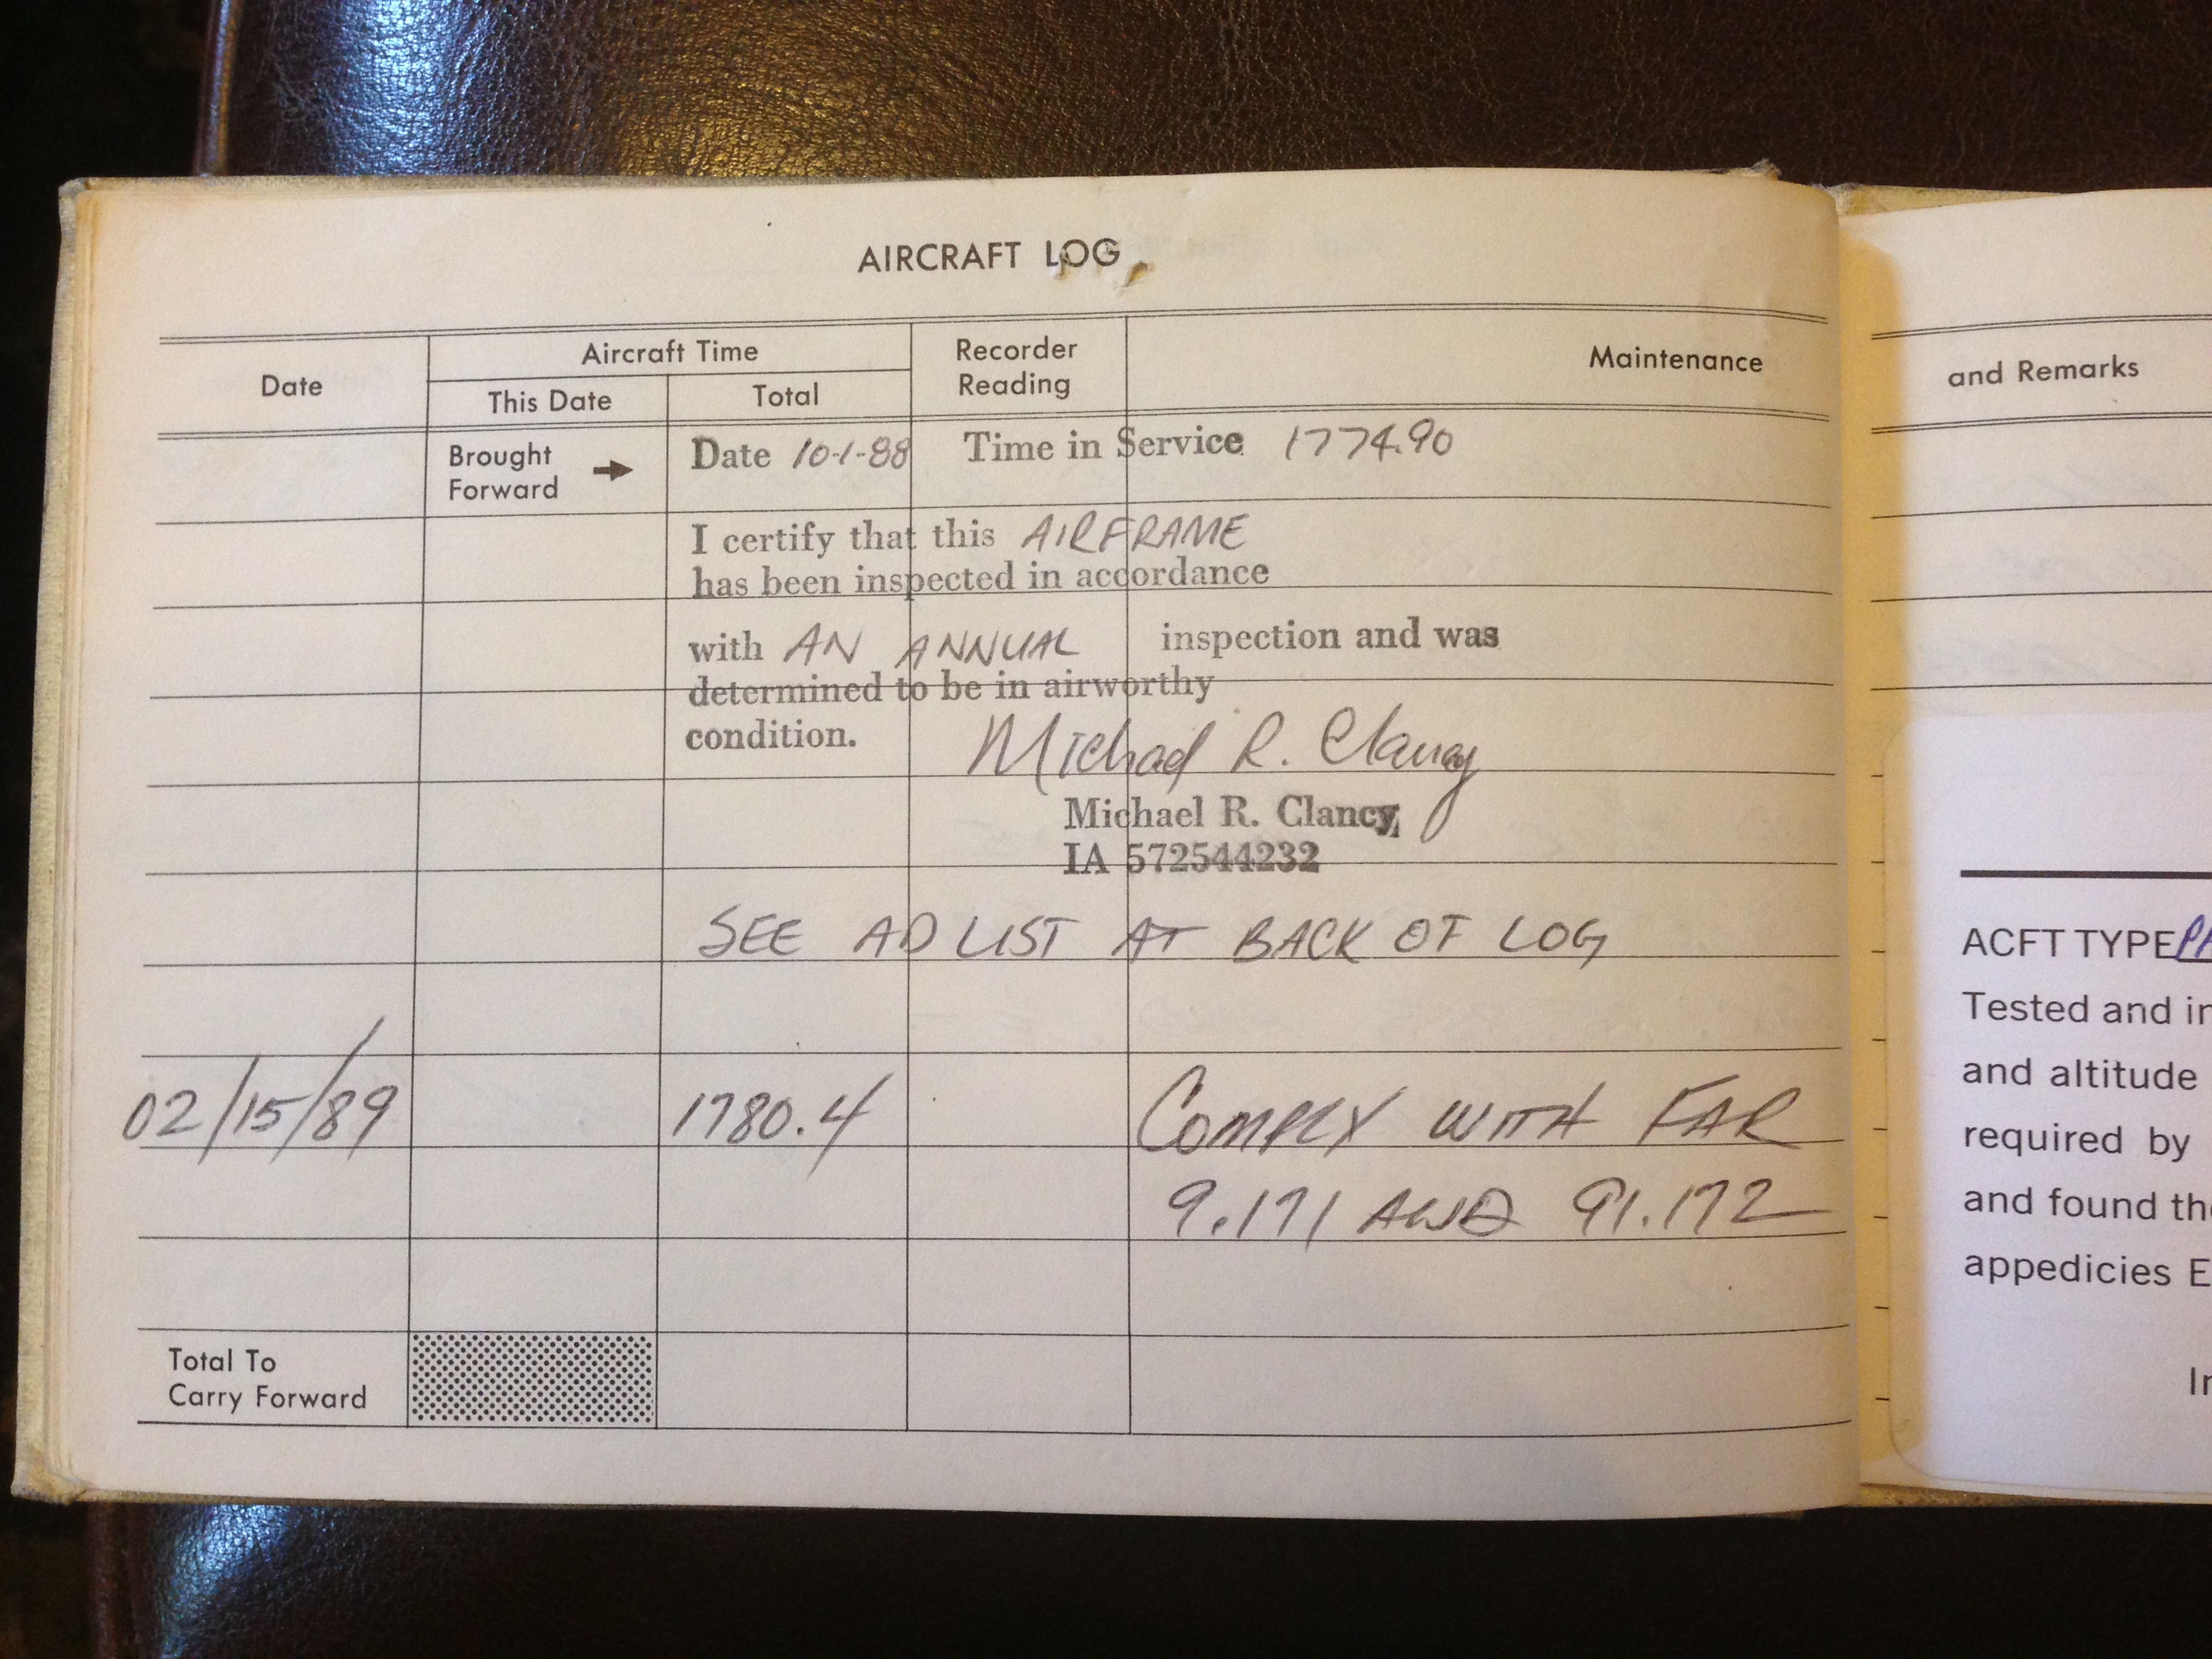 AIRCRAFT LOG
Date
Aircraft Time
This Date
Total
Recorder
Reading
Maintenance
Brought
Forward
Date 10-1-88 Time in Service 1774.90
I certify that this AIRFRAME
has been inspected in accordance
with AN ANNUAL inspection and was
determined to be in airworthy
condition. Michael R. Clancy
Michael R. Clancy,
IA 572544232
SEE AD LIST AT BACK OF LOG
02/15/89 1780.4 COMPLY WITH FAR
9.171 AND 91.172
Total To
Carry Forward
and Remarks
ACFT TYPE PA
Tested and in
and altitude
required by
and found the
appedicies E
In